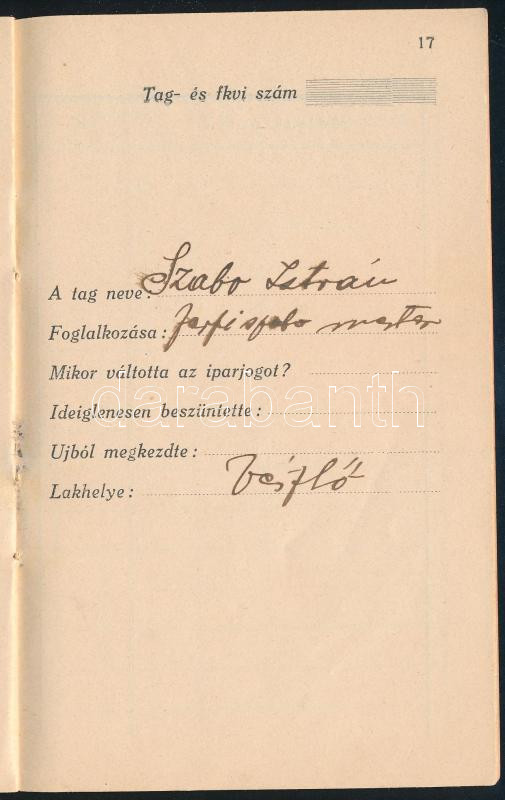 17
Tag- és fkvi szám
A tag neve: Szabo István
Foglalkozása: férfi szabo mester
Mikor váltotta az iparjogot?
darabanth
Ideiglenesen beszüntette:
Ujból megkezdte:
Lakhelye: Vésztő